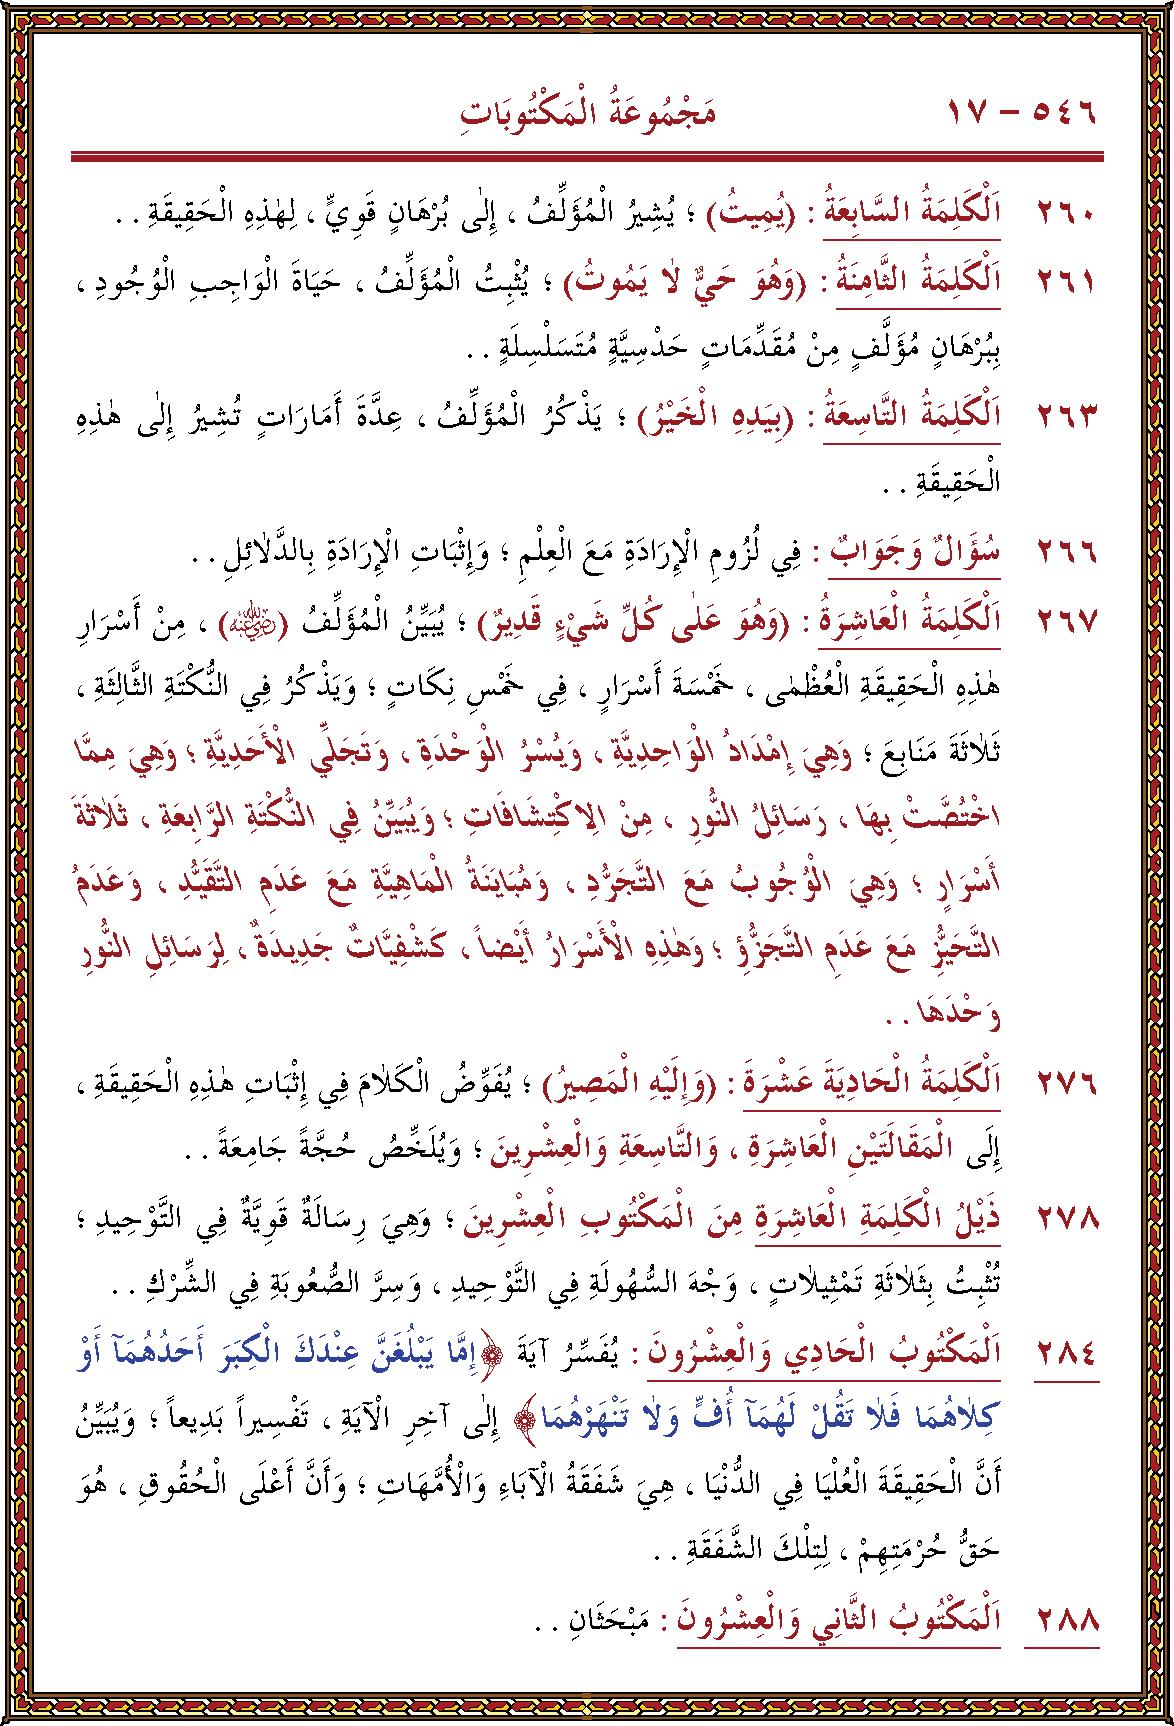 ٥٤٦ – ١٧ مَجْمُوعَةُ الْمَكْتُوبَاتِ
٢٦٠ اَلْكَلِمَةُ السَّابَعَةُ : (يُمِيتُ) ؛ يُشِيرُ الْمُؤَلِّفُ ، إِلٰى بُرْهَانٍ قَوِيٍّ ، لِهٰذِهِ الْحَقِيقَةِ . .
٢٦١ اَلْكَلِمَةُ الثَّامِنَةُ : (وَهُوَ حَيٌّ لاٰ يَمُوتُ) ؛ يُثْبِتُ الْمُؤَلِّفُ ، حَيَاةَ الْوَاجِبِ الْوُجُودِ ،
بِبُرْهَانٍ مُؤَلَّفٍ مِنْ مُقَدِّمَاتٍ حَدْسِيَّةٍ مُتَسَلْسِلَةٍ . .
٢٦٣ اَلْكَلِمَةُ التَّاسِعَةُ : (بِيَدِهِ الْخَيْرُ) ؛ يَذْكُرُ الْمُؤَلِّفُ ، عِدَّةَ أَمَارَاتٍ تُشِيرُ إِلٰى هٰذِهِ
الْحَقِيقَةِ . .
٢٦٦ سُؤَالٌ وَجَوَابٌ : فِي لُزُومِ الْإِرَادَةِ مَعَ الْعِلْمِ ؛ وَإِثْبَاتِ الْإِرَادَةِ بِالدَّلاٰئِلِ . .
٢٦٧ اَلْكَلِمَةُ الْعَاشِرَةُ : (وَهُوَ عَلٰى كُلِّ شَيْءٍ قَدِيرٌ) ؛ يُبَيِّنُ الْمُؤَلِّفُ (رضي الله عنه) ، مِنْ أَسْرَارِ
هٰذِهِ الْحَقِيقَةِ الْعُظْمٰى ، خَمْسَةَ أَسْرَارٍ ، فِي خَمْسِ نِكَاتٍ ؛ وَيَذْكُرُ فِي النُّكْتَةِ الثَّالِثَةِ ،
ثَلاٰثَةَ مَنَابِعَ ؛ وَهِيَ إِمْدَادُ الْوَاحِدِيَّةِ ، وَيُسْرُ الْوَحْدَةِ ، وَتَجَلِّي الْأَحَدِيَّةِ ؛ وَهِيَ مِمَّا
اخْتُصَّتْ بِهَا ، رَسَائِلُ النُّورِ ، مِنْ الِاكْتِشَافَاتِ ؛ وَيُبَيِّنُ فِي النُّكْتَةِ الرَّابِعَةِ ، ثَلاٰثَةَ
أَسْرَارٍ ؛ وَهِيَ الْوُجُوبُ مَعَ التَّجَرُّدِ ، وَمُبَايَنَةُ الْمَاهِيَّةِ مَعَ عَدَمِ التَّقَيُّدِ ، وَعَدَمُ
التَّحَيُّزِ مَعَ عَدَمِ التَّجَزُّؤِ ؛ وَهٰذِهِ الْأَسْرَارُ أَيْضاً ، كَشْفِيَّاتٌ جَدِيدَةٌ ، لِرَسَائِلِ النُّورِ
وَحْدَهَا . .
٢٧٦ اَلْكَلِمَةُ الْحَادِيَةَ عَشْرَةَ : (وَإِلَيْهِ الْمَصِيرُ) ؛ يُفَوِّضُ الْكَلاٰمَ فِي إِثْبَاتِ هٰذِهِ الْحَقِيقَةِ ،
إِلَى الْمَقَالَتَيْنِ الْعَاشِرَةِ ، وَالتَّاسِعَةِ وَالْعِشْرِينَ ؛ وَيُلَخِّصُ حُجَّةً جَامِعَةً . .
٢٧٨ ذَيْلُ الْكَلِمَةِ الْعَاشِرَةِ مِنَ الْمَكْتُوبِ الْعِشْرِينَ ؛ وَهِيَ رِسَالَةٌ قَوِيَّةٌ فِي التَّوْحِيدِ ؛
تُثْبِتُ بِثَلاٰثَةِ تَمْثِيلاٰتٍ ، وَجْهَ السُّهُولَةِ فِي التَّوْحِيدِ ، وَسِرَّ الصُّعُوبَةِ فِي الشِّرْكِ . .
٢٨٤ اَلْمَكْتُوبُ الْحَادِي وَالْعِشْرُونَ : يُفَسِّرُ آيَةَ ﴿إِمَّا يَبْلُغَنَّ عِنْدَكَ الْكِبَرَ أَحَدُهُمَآ أَوْ
كِلاٰهُمَا فَلاٰ تَقُلْ لَهُمَآ أُفٍّ وَلاٰ تَنْهَرْهُمَا﴾ إِلٰى آخِرِ الْآيَةِ ، تَفْسِيراً بَدِيعاً ؛ وَيُبَيِّنُ
أَنَّ الْحَقِيقَةَ الْعُلْيَا فِي الدُّنْيَا ، هِيَ شَفَقَةُ الْآبَاءِ وَالْأُمَّهَاتِ ؛ وَأَنَّ أَعْلَى الْحُقُوقِ ، هُوَ
حَقُّ حُرْمَتِهِمْ ، لِتِلْكَ الشَّفَقَةِ . .
٢٨٨ اَلْمَكْتُوبُ الثَّانِي وَالْعِشْرُونَ : مَبْحَثَانِ . .